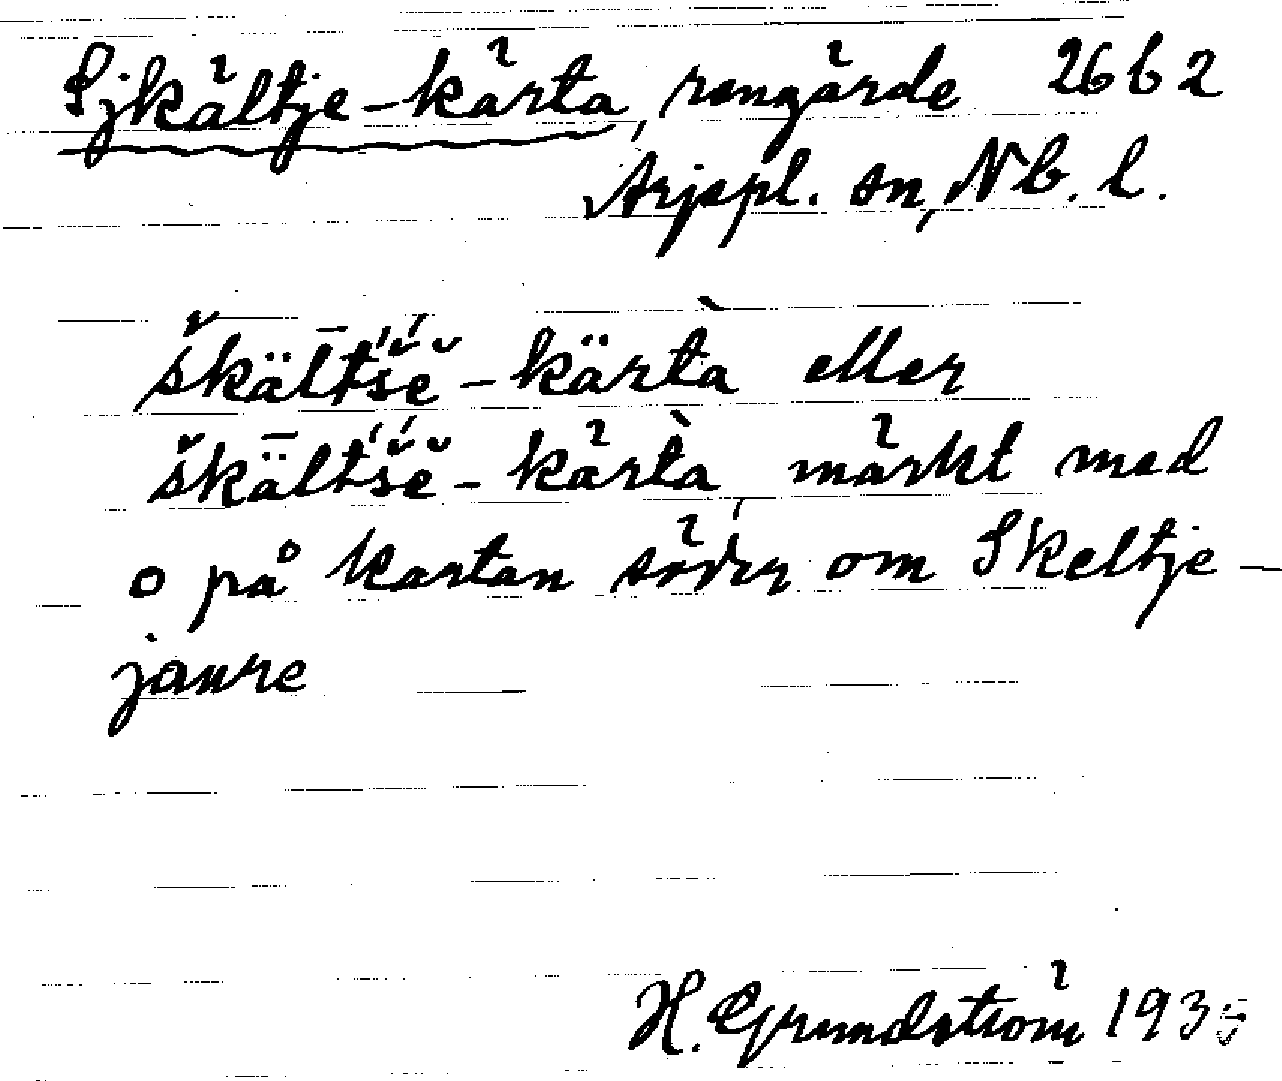 Sjkältje-kärta, rengärde 26 b 2
Arjepl. sn, Nb. l.
škäl̄t́š́ĕ-kärtà eller
škǟlt́š́ĕ-kärtà, märkt med
o på kartan söder om Skeltje-
jaure
H. Grundström 1935